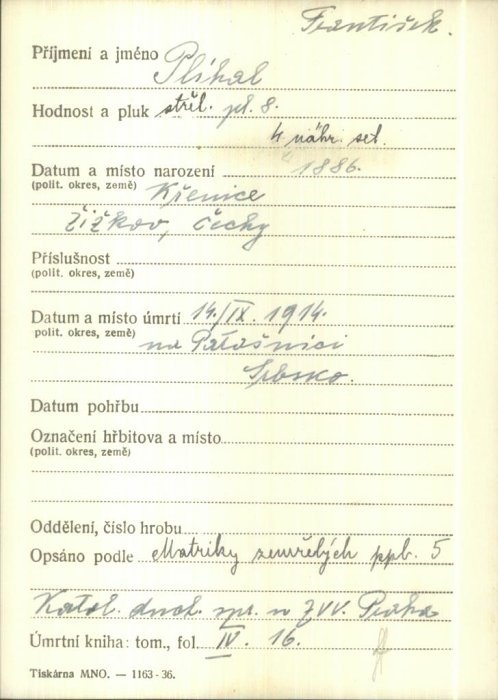 František.
Příjmení a jméno Plíhal
Hodnost a pluk střel. pl. 8.
4. náhr. set.
Datum a místo narození 1886.
(polit. okres, země) Křenice
Žižkov, Čechy
Příslušnost
(polit. okres, země)
Datum a místo úmrtí 14./IX. 1914.
polit. okres, země) na Patašnici
Srbsko.
Datum pohřbu
Označení hřbitova a místo
(polit. okres, země)
Oddělení, číslo hrobu
Opsáno podle Matriky zemřelých ppl. 5
Katol. duch. spr. u ZVV. Praha
Úmrtní kniha: tom., fol. IV. 16.
Tiskárna MNO. — 1163-36.